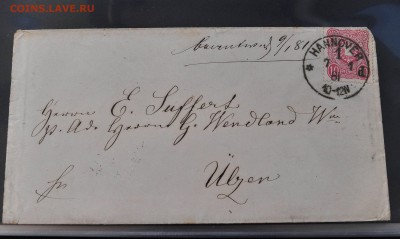 COINSS.LAVE.RU
beantw. 9/1 81
* HANNOVER *
1
7 1
81
10-12N
Herrn E. Suffert
p. Ad. Herrn G. Wendland Wwe
Ülzen
fr.